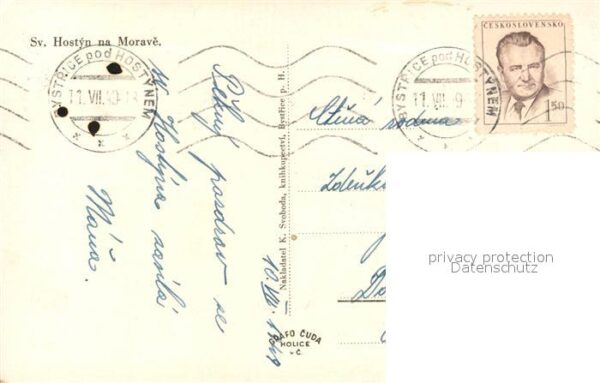 Sv. Hostýn na Moravě.
BYSTŘICE pod HOSTÝNEM
11. VII. 49-18
BYSTŘICE pod HOSTÝNEM
11. VII. 49
ČESKOSLOVENSKO
1.50
Pěkný pozdrav se
sv. Hostýna zasílá
Máňa.
10. VII. 1949
Nakladatel K. Svoboda, knihkupectví, Bystřice p. H.
GRAFO ČUDA
HOLICE
v Č.
Ctěná rodina
Zdeňk
privacy protection
Datenschutz